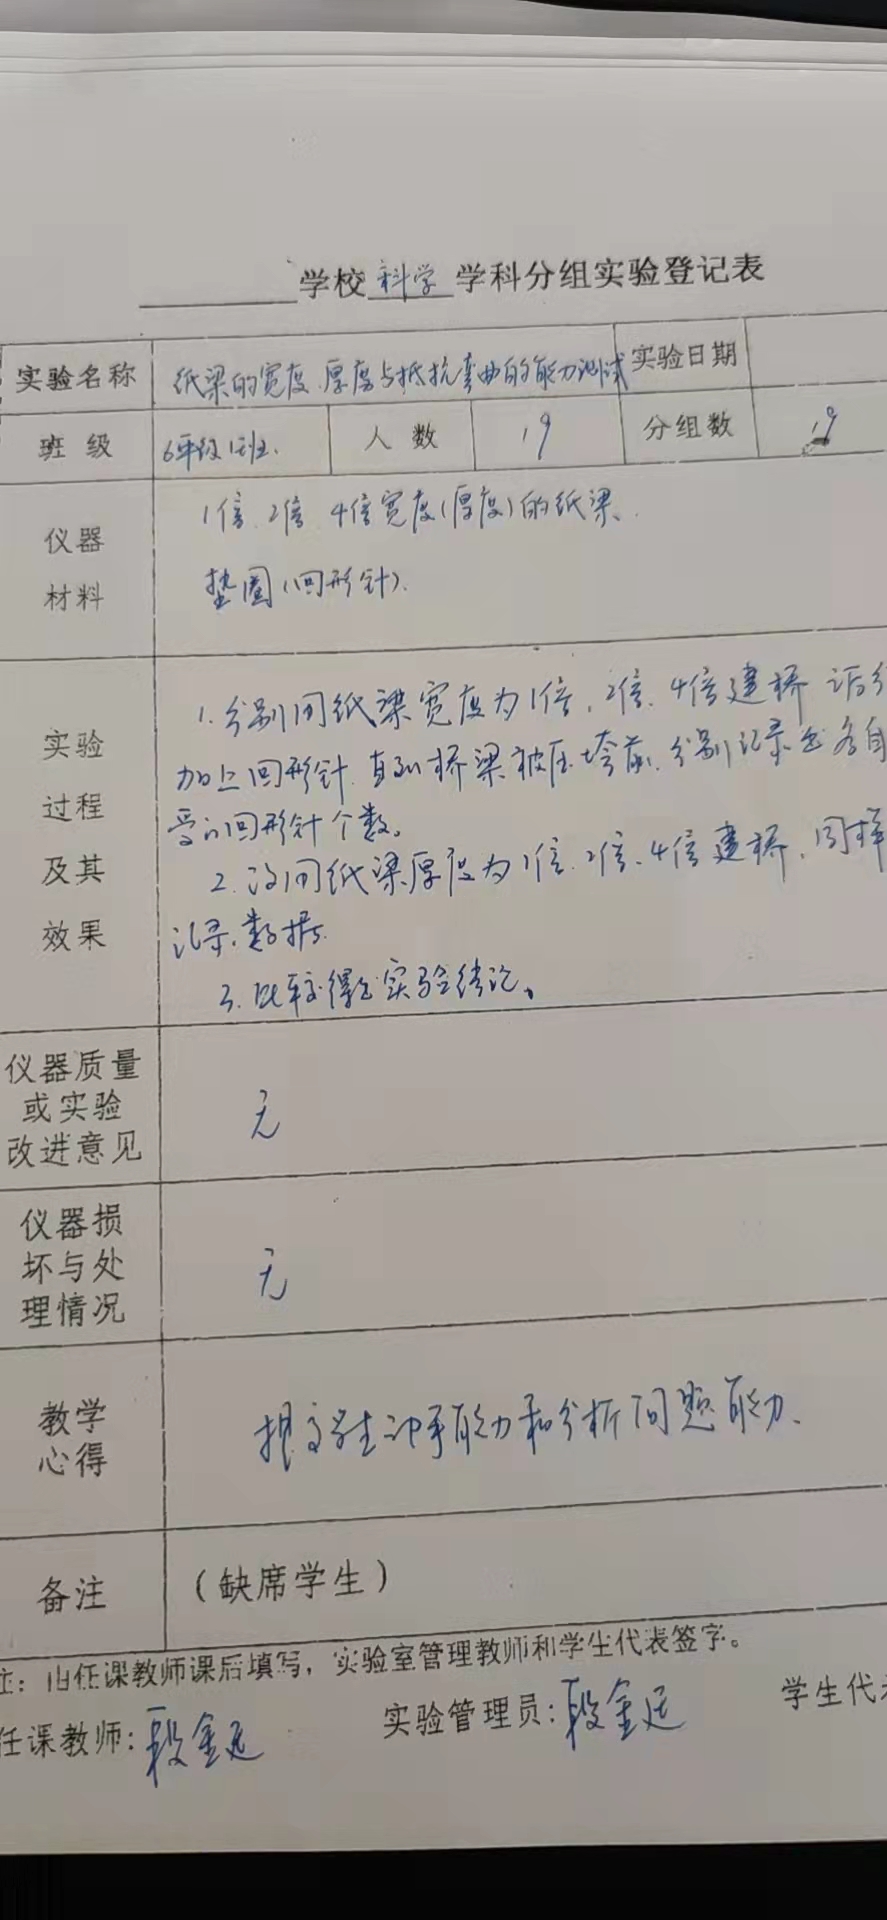 学校 科学 学科分组实验登记表
实验名称 纸梁的宽度、厚度与抵抗弯曲的能力测试 实验日期
班级 6年级1班. 人数 19 分组数 19
仪器材料
1倍、2倍、4倍宽度(厚度)的纸梁、
垫圈(回形针).
实验过程及其效果
1. 分别用纸梁宽度为1倍、2倍、4倍建桥
加上回形针,直到桥梁被压垮前、分别记录出各自
受的回形针个数。
2. 纸梁厚度为1倍、2倍、4倍建桥、同样
记录数据.
3. 比较得出实验结论。
仪器质量或实验改进意见 无
仪器损坏与处理情况 无
教学心得 提高学生动手能力和分析问题能力.
备注 (缺席学生)
注: 由任课教师课后填写, 实验室管理教师和学生代表签字。
任课教师: 段金廷 实验管理员: 段金廷 学生代